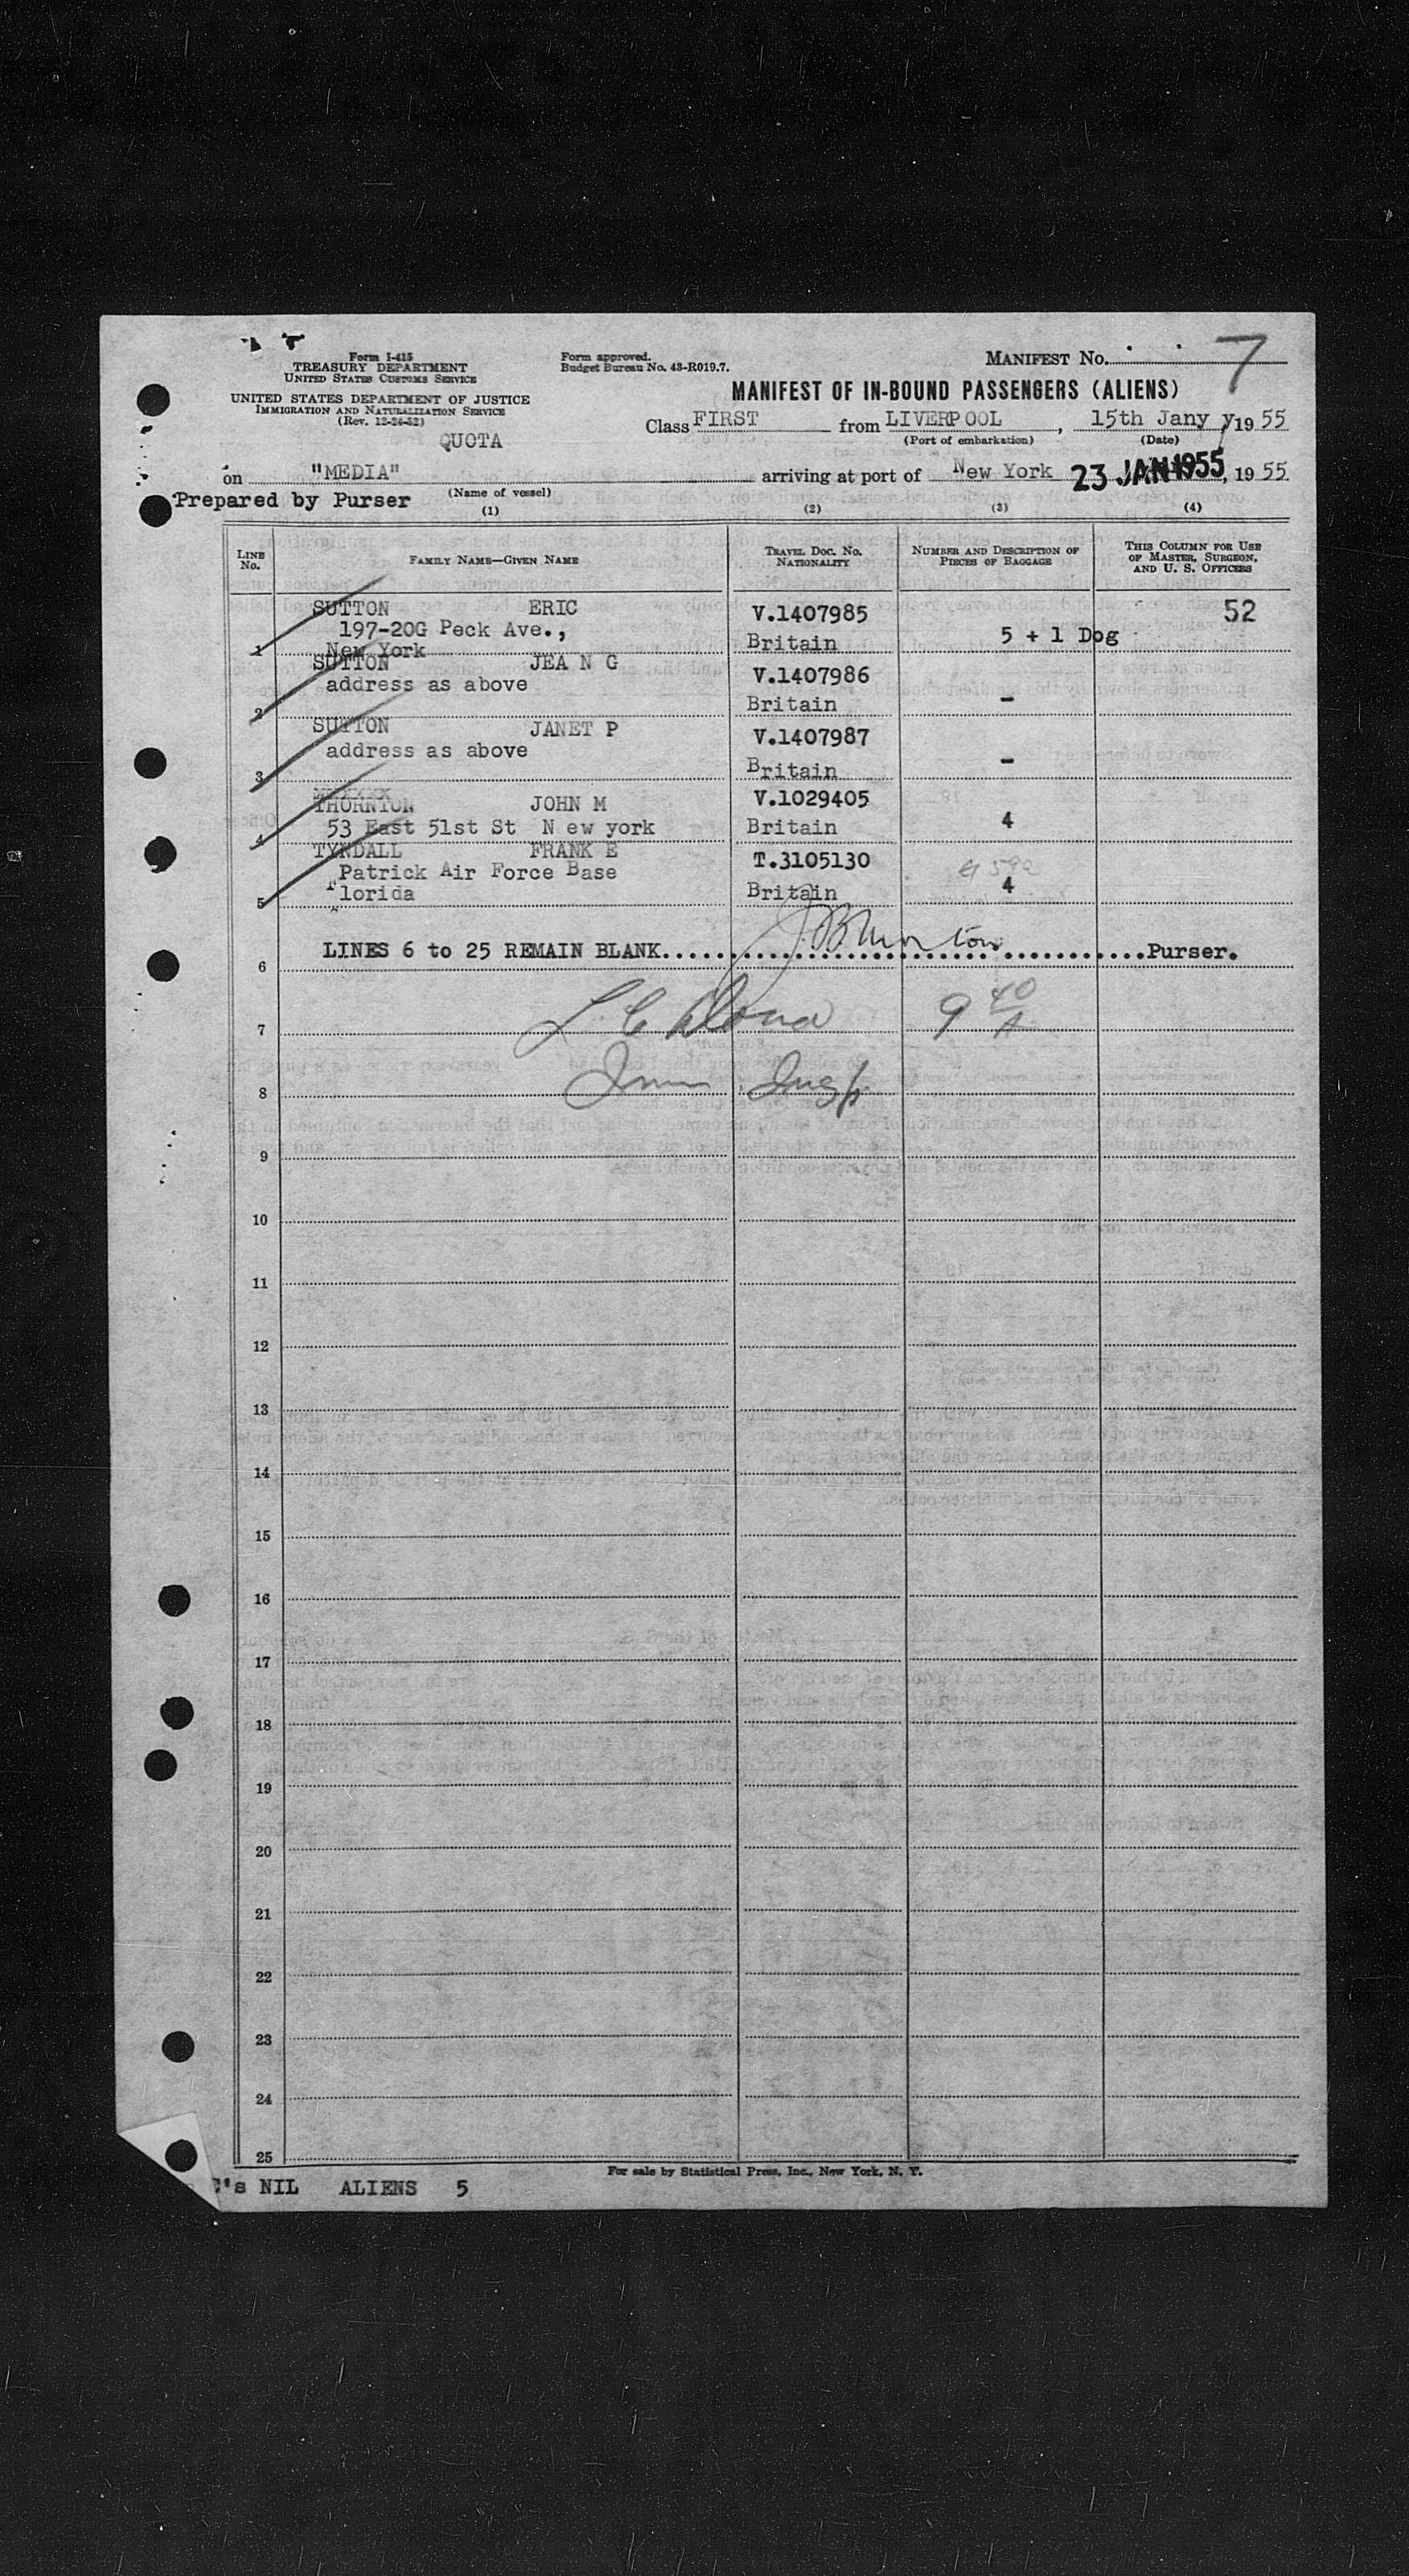 Form I-415
TREASURY DEPARTMENT
UNITED STATES CUSTOMS SERVICE
UNITED STATES DEPARTMENT OF JUSTICE
IMMIGRATION AND NATURALIZATION SERVICE
(Rev. 12-24-52)
Form approved.
Budget Bureau No. 43-R019.7.
MANIFEST NO. 7
MANIFEST OF IN-BOUND PASSENGERS (ALIENS)
Class FIRST from LIVERPOOL, 15th Jany y 1955
(Port of embarkation) (Date)
QUOTA
on "MEDIA" arriving at port of New York 23 JAN 1955, 1955
Prepared by Purser (Name of vessel)
(1) (2) (3) (4)
LINE No. FAMILY NAME—GIVEN NAME TRAVEL DOC. NO. NATIONALITY NUMBER AND DESCRIPTION OF PIECES OF BAGGAGE THIS COLUMN FOR USE OF MASTER, SURGEON, AND U. S. OFFICERS
SUTTON ERIC V.1407985 52
197-20G Peck Ave.,
1 New York Britain 5 + 1 Dog
SUTTON JEA N G V.1407986
address as above
2 Britain -
SUTTON JANET P V.1407987
address as above
3 Britain -
THORNTON JOHN M V.1029405
4 53 East 51st St N ew york Britain 4
TYNDALL FRANK E T.3105130
Patrick Air Force Base
5 Florida Britain 4
LINES 6 to 25 REMAIN BLANK..............................Purser.
6
7 9 40 A
8 Imm Insp
9
10
11
12
13
14
15
16
17
18
19
20
21
22
23
24
25
For sale by Statistical Press, Inc., New York, N. Y.
's NIL ALIENS 5